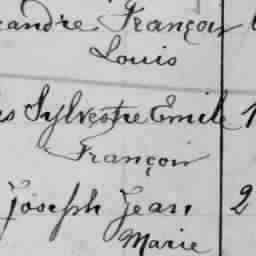 eandre François
Louis
es Sylvestre Emile 1
François
Joseph Jean 2
Marie